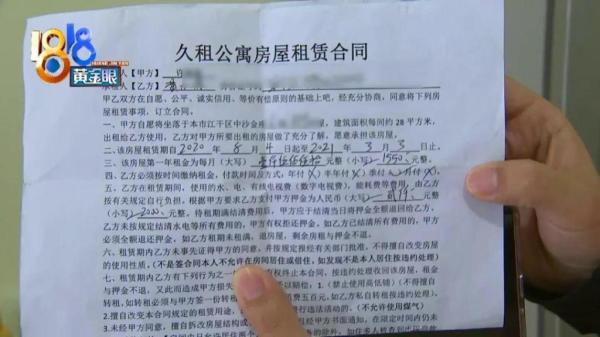 1818
黄金眼
久租公寓房屋租赁合同
人【甲方】
承租人【乙方】
甲乙双方在自愿、公平、诚实信用、等价有偿原则的基础上吧，经充分协商，同意将下列房
屋租赁事项，订立合同。
一、甲方自愿将坐落于本市江干区中沙金座 建筑面积每间约 28 平方米，
出租给乙方使用，乙方对甲方所要出租的房屋做了充分了解，愿意承担该房屋。
二、该房屋租期自 2020 年 8 月 4 日起至 2021 年 3 月 3 日。
三、该房屋第一年租金为每月（大写） 元整（小写）1550元整。
四、乙方必须按时间缴纳租金，付款时间及方式：年付 半年付
五、乙方在租赁期间，使用的水、电、有线电视费（数字电视费），能耗费等费用，由乙方
按有关规定自行负担。根据甲方要求乙方支付甲方押金为人民币（大写）贰仟元整
（小写）2000元整。待租期满结清费用后，甲方应于结清当日将押金全额退回给乙方，
乙方未按规定结清水电等所有费用的，甲方有权拒还押金。如乙方已结清所有费用的，甲方
必须全额退还押金。如乙方租期未租满，退房屋，剩余房租与押金不退。
六、租赁期内乙方未事先证得甲方的同意，并按规定报经有关部门批准，不得擅自改变房屋
的使用性质。（不是签合同本人不允许在房间居住或借住，如发现不是本人居住按违约处理）
七、租赁期内乙方有下列行为之一 有权终止本合同，按违约处理收回该房屋，租金
与押金不退，又此而造成甲方损失 以赔偿：1.（禁止使用高低铺）（不得擅自
转租，如转租必须与甲方签一份转 费五百元，如乙方私自转租按违约处理）。
2.擅自改变本合同规定的租赁用途， 进行违法活动的。（不允许使用煤气）
3.未经甲方同意，擅自拆改房屋结构或 甲方书面通知，在限定时间内仍未